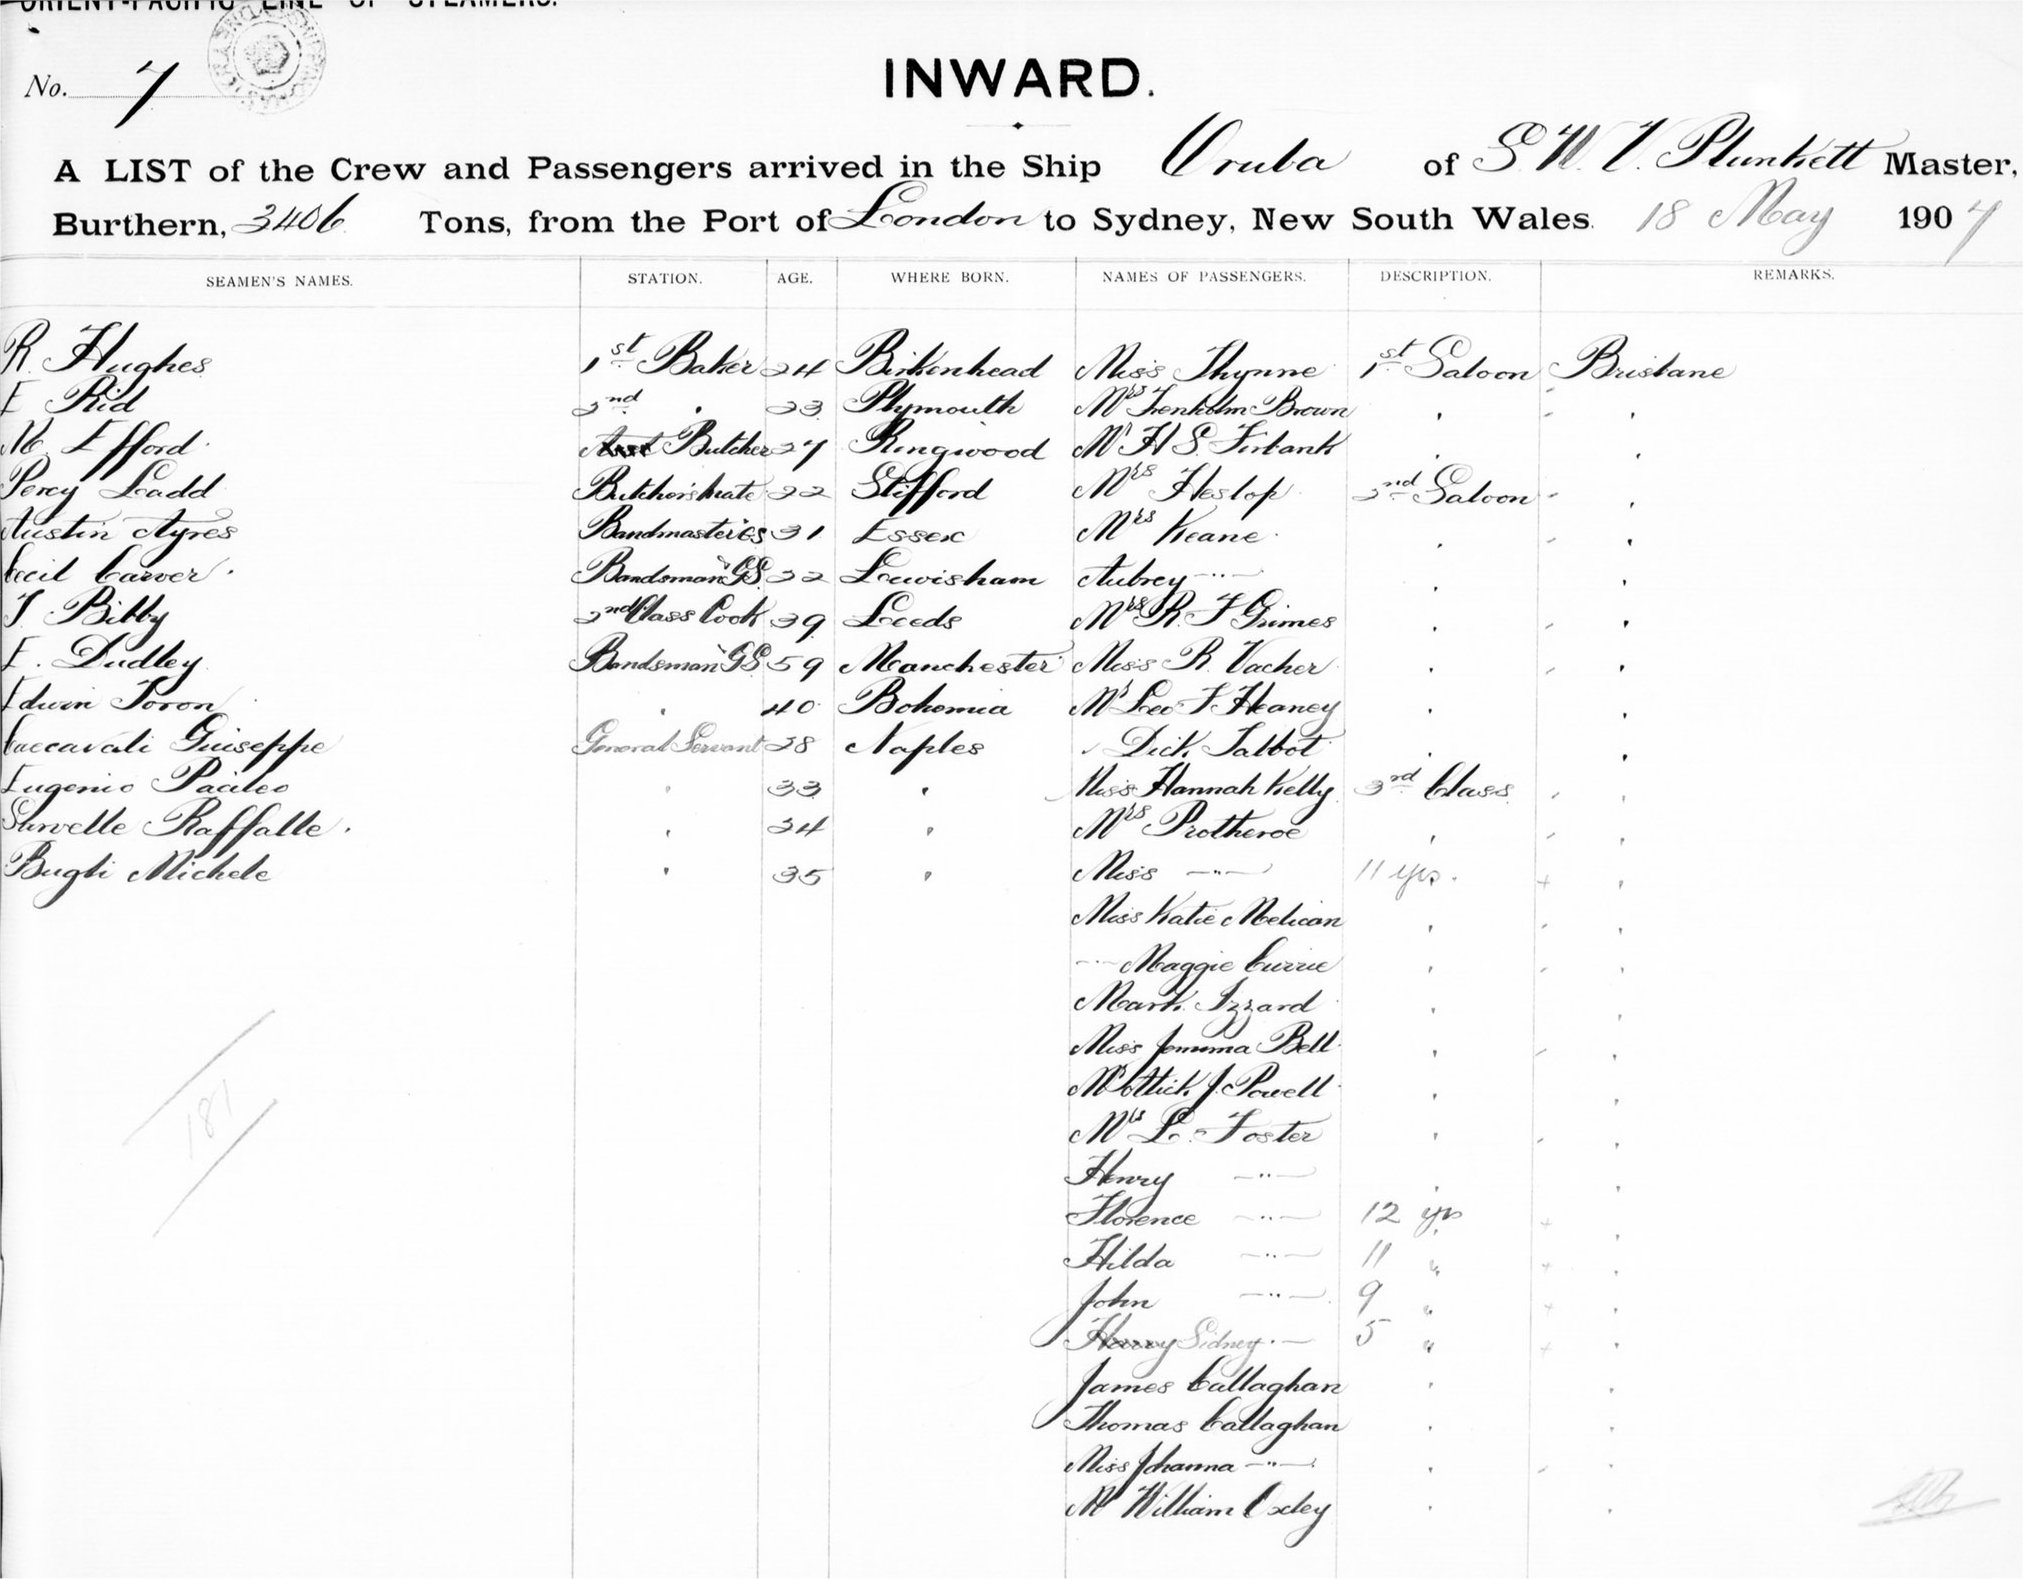 ORIENT-PACIFIC LINE OF STEAMERS.
No. 7
INWARD.
A LIST of the Crew and Passengers arrived in the Ship Oruba of S. W. V. Plunkett Master,
Burthern, 3406 Tons, from the Port of London to Sydney, New South Wales. 18 May 1907
SEAMEN'S NAMES. STATION. AGE. WHERE BORN. NAMES OF PASSENGERS. DESCRIPTION. REMARKS.
R. Hughes 1st Baker 24 Birkenhead Miss Thynne 1st Saloon Brisbane
E Rid 2nd " 23 Plymouth Mrs Trenholm Brown " "
M. Efford Butcher 27 Ringwood Mr H S. Firbank " "
Percy Ladd Butcher's Mate 22 Stifford Mrs Heslop 2nd Saloon "
Austin Ayres Bandmaster 31 Essex Mrs Keane " "
Cecil Carver Bandsman GS 22 Lewisham Aubrey -"- " "
T Bibby 2nd Class Cook 39 Leeds Mrs R. F Grimes " "
E. Dudley Bandsman GS 59 Manchester Miss R. Vacher " "
Edwin Toron " 40 Bohemia Mr Leo F Heaney " "
Caccavali Guiseppe General Servant 38 Naples " Dick Talbot " "
Eugenio Pacileo " 33 " Miss Hannah Kelly 3rd Class "
Raffalle " 34 " Mrs Protheroe " "
Bugli Michele " 35 " Miss -"- 11 yrs. "
Miss Katie Melican " "
-"- Maggie Currie " "
Mark Izzard " "
Miss Jemima Bell " "
J. Powell " "
Mrs L. Foster " "
Henry -"- " "
Florence -"- 12 yrs "
Hilda -"- 11 " "
John -"- 9 " "
Henry Sidney -"- 5 " "
James Callaghan " "
Thomas Callaghan " "
Miss Johanna -"- " "
Mr William Oxley " "
181